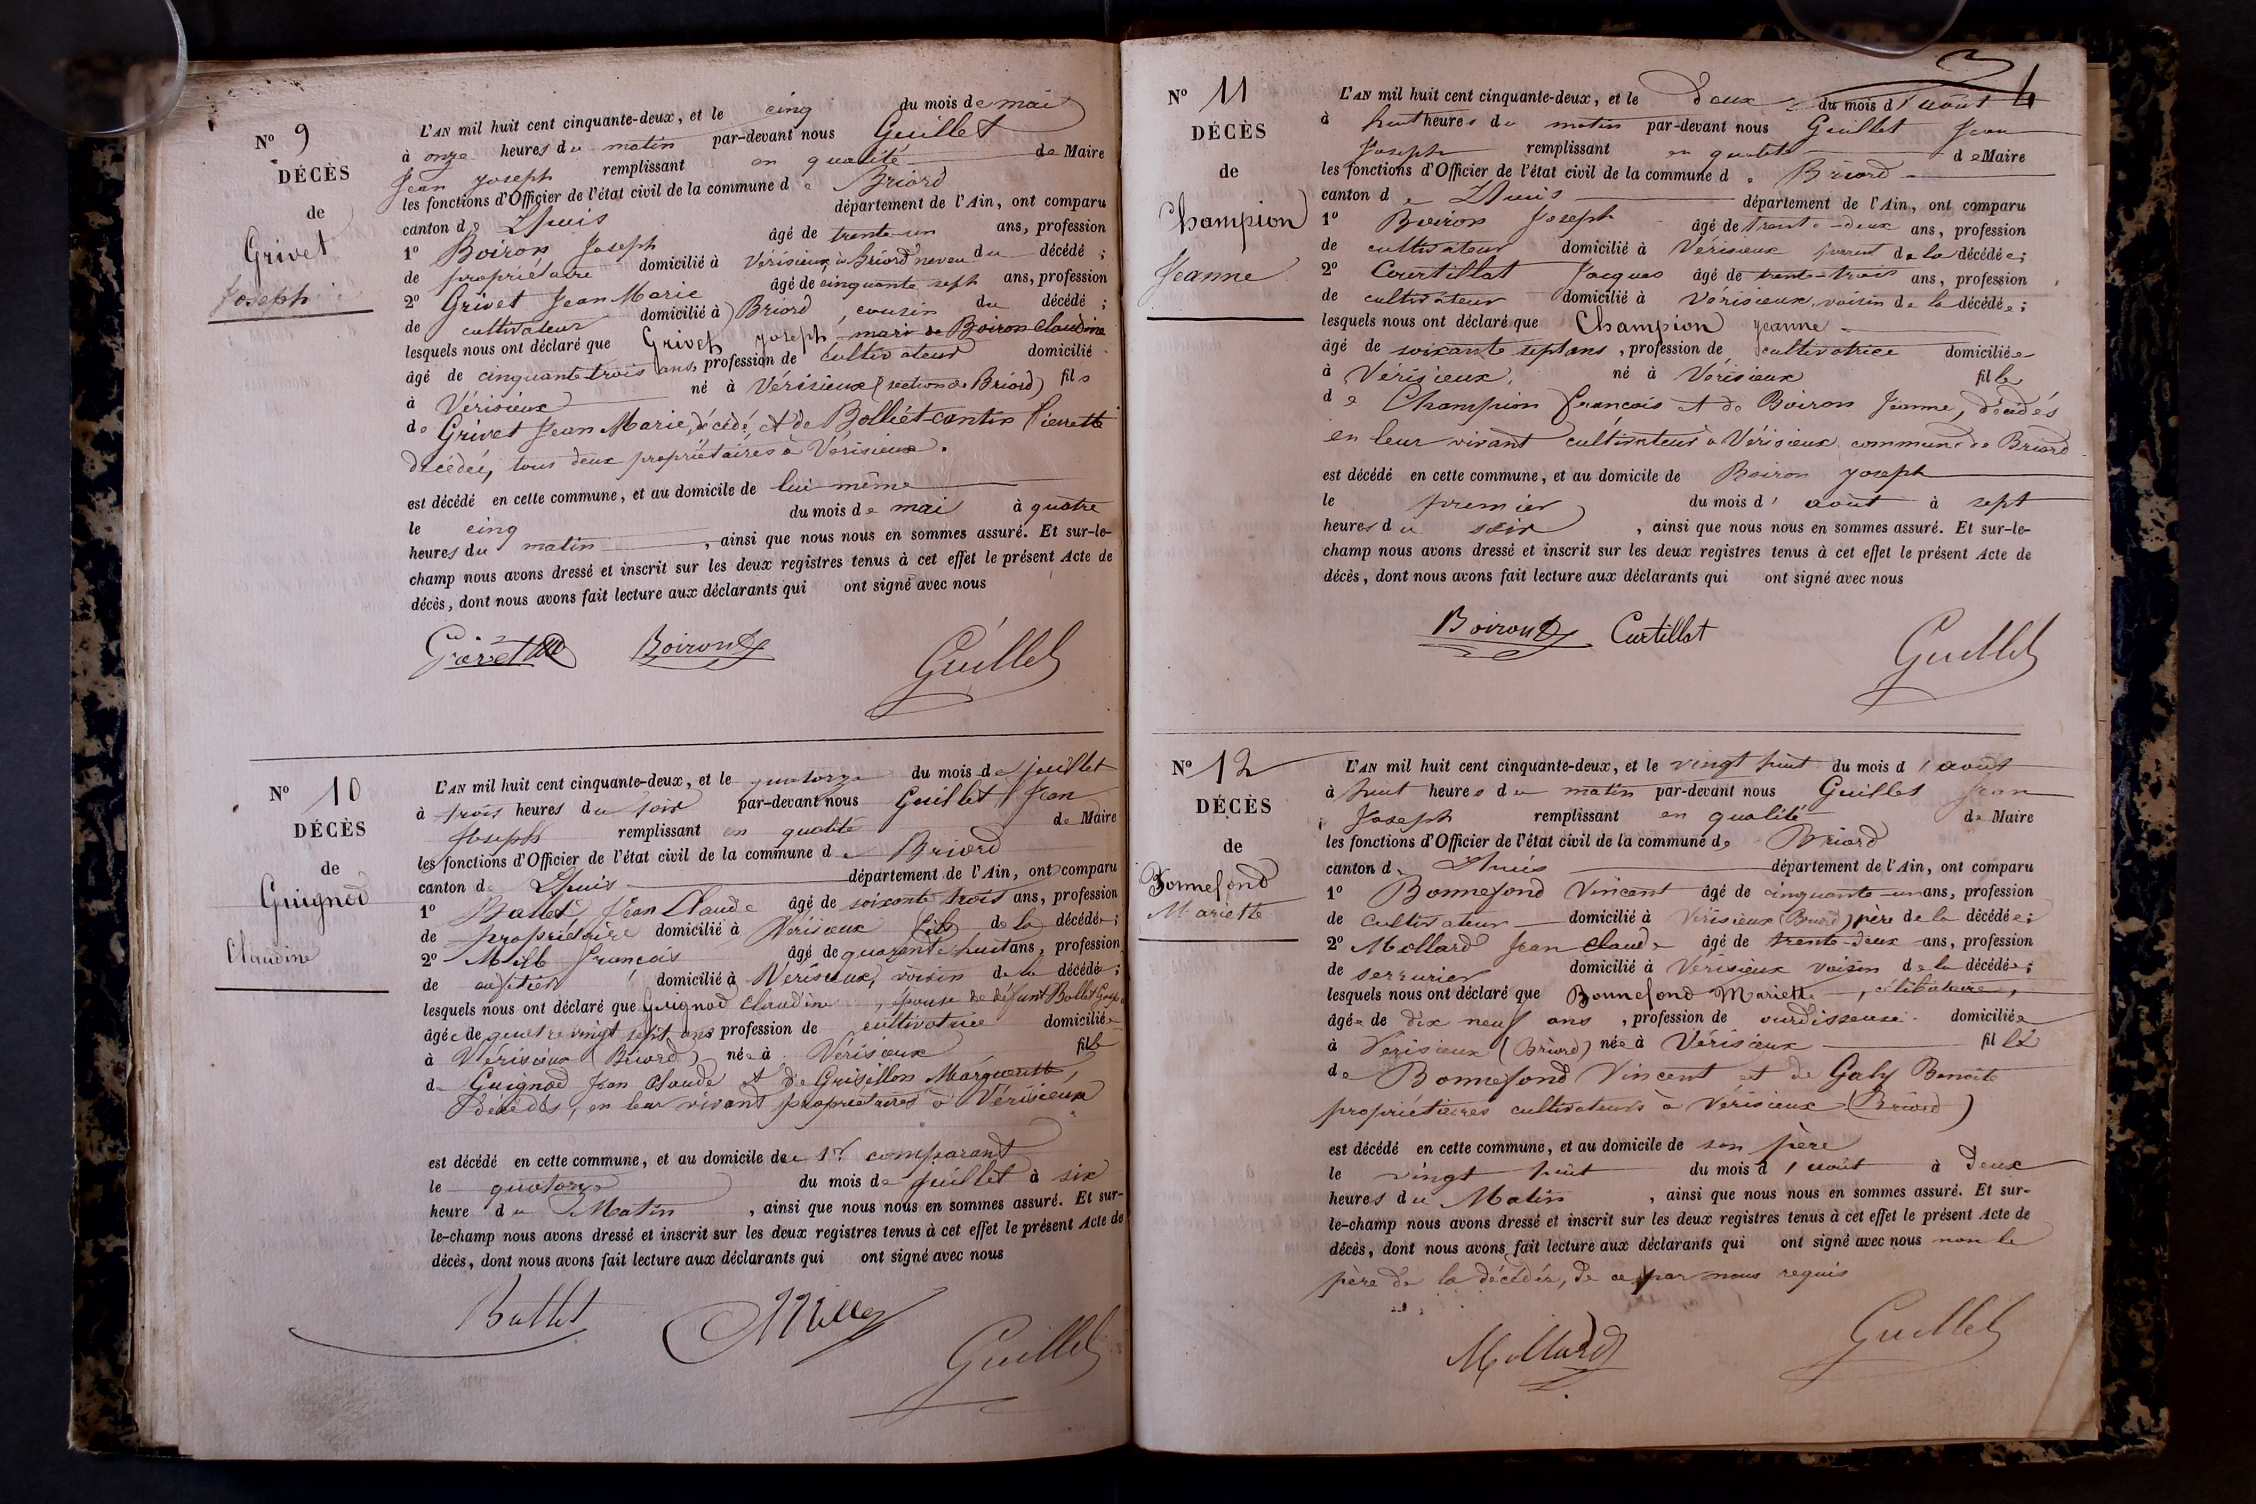 N° 9
DÉCÈS
de
Grivet
Joseph
L'AN mil huit cent cinquante-deux, et le cinq du mois de mai
à onze heures du matin par-devant nous Guillet
Jean Joseph remplissant en qualité de Maire
les fonctions d'Officier de l'état civil de la commune de Briord
canton de Lhuis département de l'Ain, ont comparu
1° Boiron Joseph âgé de trente-un ans, profession
de propriétaire domicilié à Verisieux, à Briord neveu du décédé ;
2° Grivet Jean Marie âgé de cinquante sept ans, profession
de cultivateur domicilié à Briord, cousin du décédé ;
lesquels nous ont déclaré que Grivet Joseph mari de Boiron Claudine
âgé de cinquante trois ans, profession de cultivateur domicilié
à Vérisieux né à Vérisieux (section de Briord) fils
de Grivet Jean Marie, décédé et de Bolliet-cantin Pierrette
décédée, tous deux propriétaires à Vérisieux.
est décédé en cette commune, et au domicile de lui-même
le cinq du mois de mai à quatre
heures du matin, ainsi que nous nous en sommes assuré. Et sur-le-
champ nous avons dressé et inscrit sur les deux registres tenus à cet effet le présent Acte de
décès, dont nous avons fait lecture aux déclarants qui ont signé avec nous
Grivet Boiron Guillet
N° 10
DÉCÈS
de
Guignod
Claudine
L'AN mil huit cent cinquante-deux, et le quatorze du mois de juillet
à trois heures du soir par-devant nous Guillet Jean
Joseph remplissant en qualité de Maire
les fonctions d'Officier de l'état civil de la commune de Briord
canton de Lhuis département de l'Ain, ont comparu
1° Ballet Jean Claude âgé de soixante trois ans, profession
de propriétaire domicilié à Vérisieux fils de la décédée ;
2° François âgé de quarante huit ans, profession
de domicilié à Vérisieux, voisin de la décédée ;
lesquels nous ont déclaré que Guignod Claudine, épouse de défunt
âgée de quatre vingt sept ans profession de cultivatrice domiciliée
à Vérisieux (Briord) née à Vérisieux fille
de Guignod Jean Claude et de Grisillon Marguerite,
décédés, en leur vivant propriétaires à Vérisieux
est décédé en cette commune, et au domicile de 1er comparant
le quatorze du mois de juillet à six
heure du Matin, ainsi que nous nous en sommes assuré. Et sur-
le-champ nous avons dressé et inscrit sur les deux registres tenus à cet effet le présent Acte de
décès, dont nous avons fait lecture aux déclarants qui ont signé avec nous
Ballet Guillet
N° 11
DÉCÈS
de
Champion
Jeanne
L'AN mil huit cent cinquante-deux, et le deux du mois d'août
à huit heures du matin par-devant nous Guillet Jean
Joseph remplissant en qualité de Maire
les fonctions d'Officier de l'état civil de la commune de Briord
canton de Lhuis département de l'Ain, ont comparu
1° Boiron Joseph âgé de trente-deux ans, profession
de cultivateur domicilié à Vérisieux parent de la décédée ;
2° Courtillat Jacques âgé de trente-trois ans, profession
de cultivateur domicilié à Vérisieux, voisin de la décédée ;
lesquels nous ont déclaré que Champion Jeanne
âgé de soixante sept ans, profession de cultivatrice domiciliée
à Vérisieux, né à Vérisieux fille
de Champion François et de Boiron Jeanne, décédés
en leur vivant cultivateurs à Vérisieux commune de Briord
est décédé en cette commune, et au domicile de Boiron Joseph
le premier du mois d'août à sept
heures du soir, ainsi que nous nous en sommes assuré. Et sur-le-
champ nous avons dressé et inscrit sur les deux registres tenus à cet effet le présent Acte de
décès, dont nous avons fait lecture aux déclarants qui ont signé avec nous
Boiron Curtillat Guillet
N° 12
DÉCÈS
de
Bonnefond
Mariette
L'AN mil huit cent cinquante-deux, et le vingt huit du mois d'août
à huit heures du matin par-devant nous Guillet Jean
Joseph remplissant en qualité de Maire
les fonctions d'Officier de l'état civil de la commune de Briord
canton de Lhuis département de l'Ain, ont comparu
1° Bonnefond Vincent âgé de cinquante-un ans, profession
de cultivateur domicilié à Vérisieux (Briord) père de la décédée ;
2° Mollard Jean Claude âgé de trente-deux ans, profession
de serrurier domicilié à Vérisieux voisin de la décédée ;
lesquels nous ont déclaré que Bonnefond Mariette, célibataire,
âgée de dix neuf ans, profession de ourdisseuse domiciliée
à Vérisieux (Briord) née à Vérisieux fille
de Bonnefond Vincent et de Galy Benoîte
propriétaires cultivateurs à Vérisieux (Briord)
est décédé en cette commune, et au domicile de son père
le vingt huit du mois d'août à deux
heures du Matin, ainsi que nous nous en sommes assuré. Et sur-
le-champ nous avons dressé et inscrit sur les deux registres tenus à cet effet le présent Acte de
décès, dont nous avons fait lecture aux déclarants qui ont signé avec nous non le
père de la décédée, de ce par nous requis
Mollard Guillet